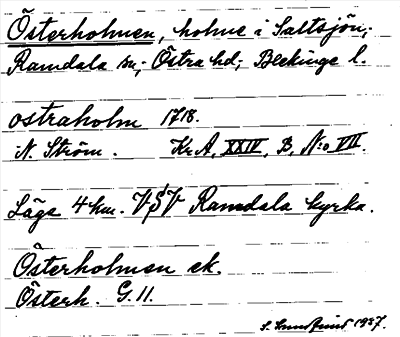 Österholmen, holme i Saltsjön;
Ramdala sn; Östra hd; Blekinge l.
ostraholm 1718.
N. Ström. Kr. A, XXIV, B, N:o VII.
Läge 4 km. VSV Ramdala kyrka.
Österholmen ek.
Österh. G. 11.
1927.